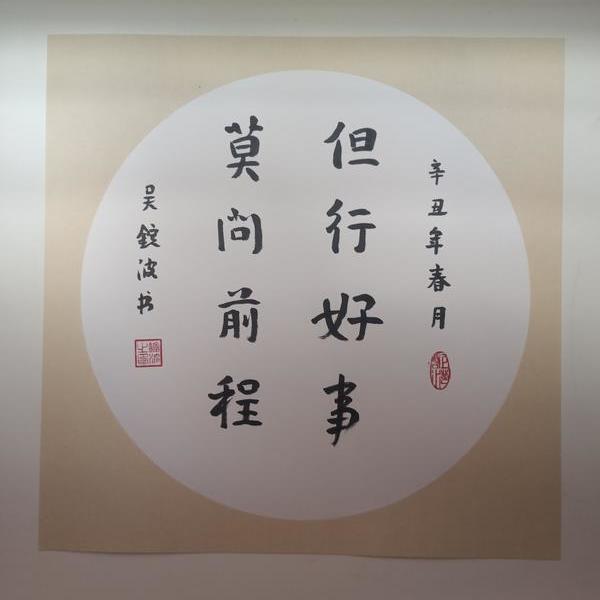 辛丑年春月
但行好事
莫问前程
吴锭波书